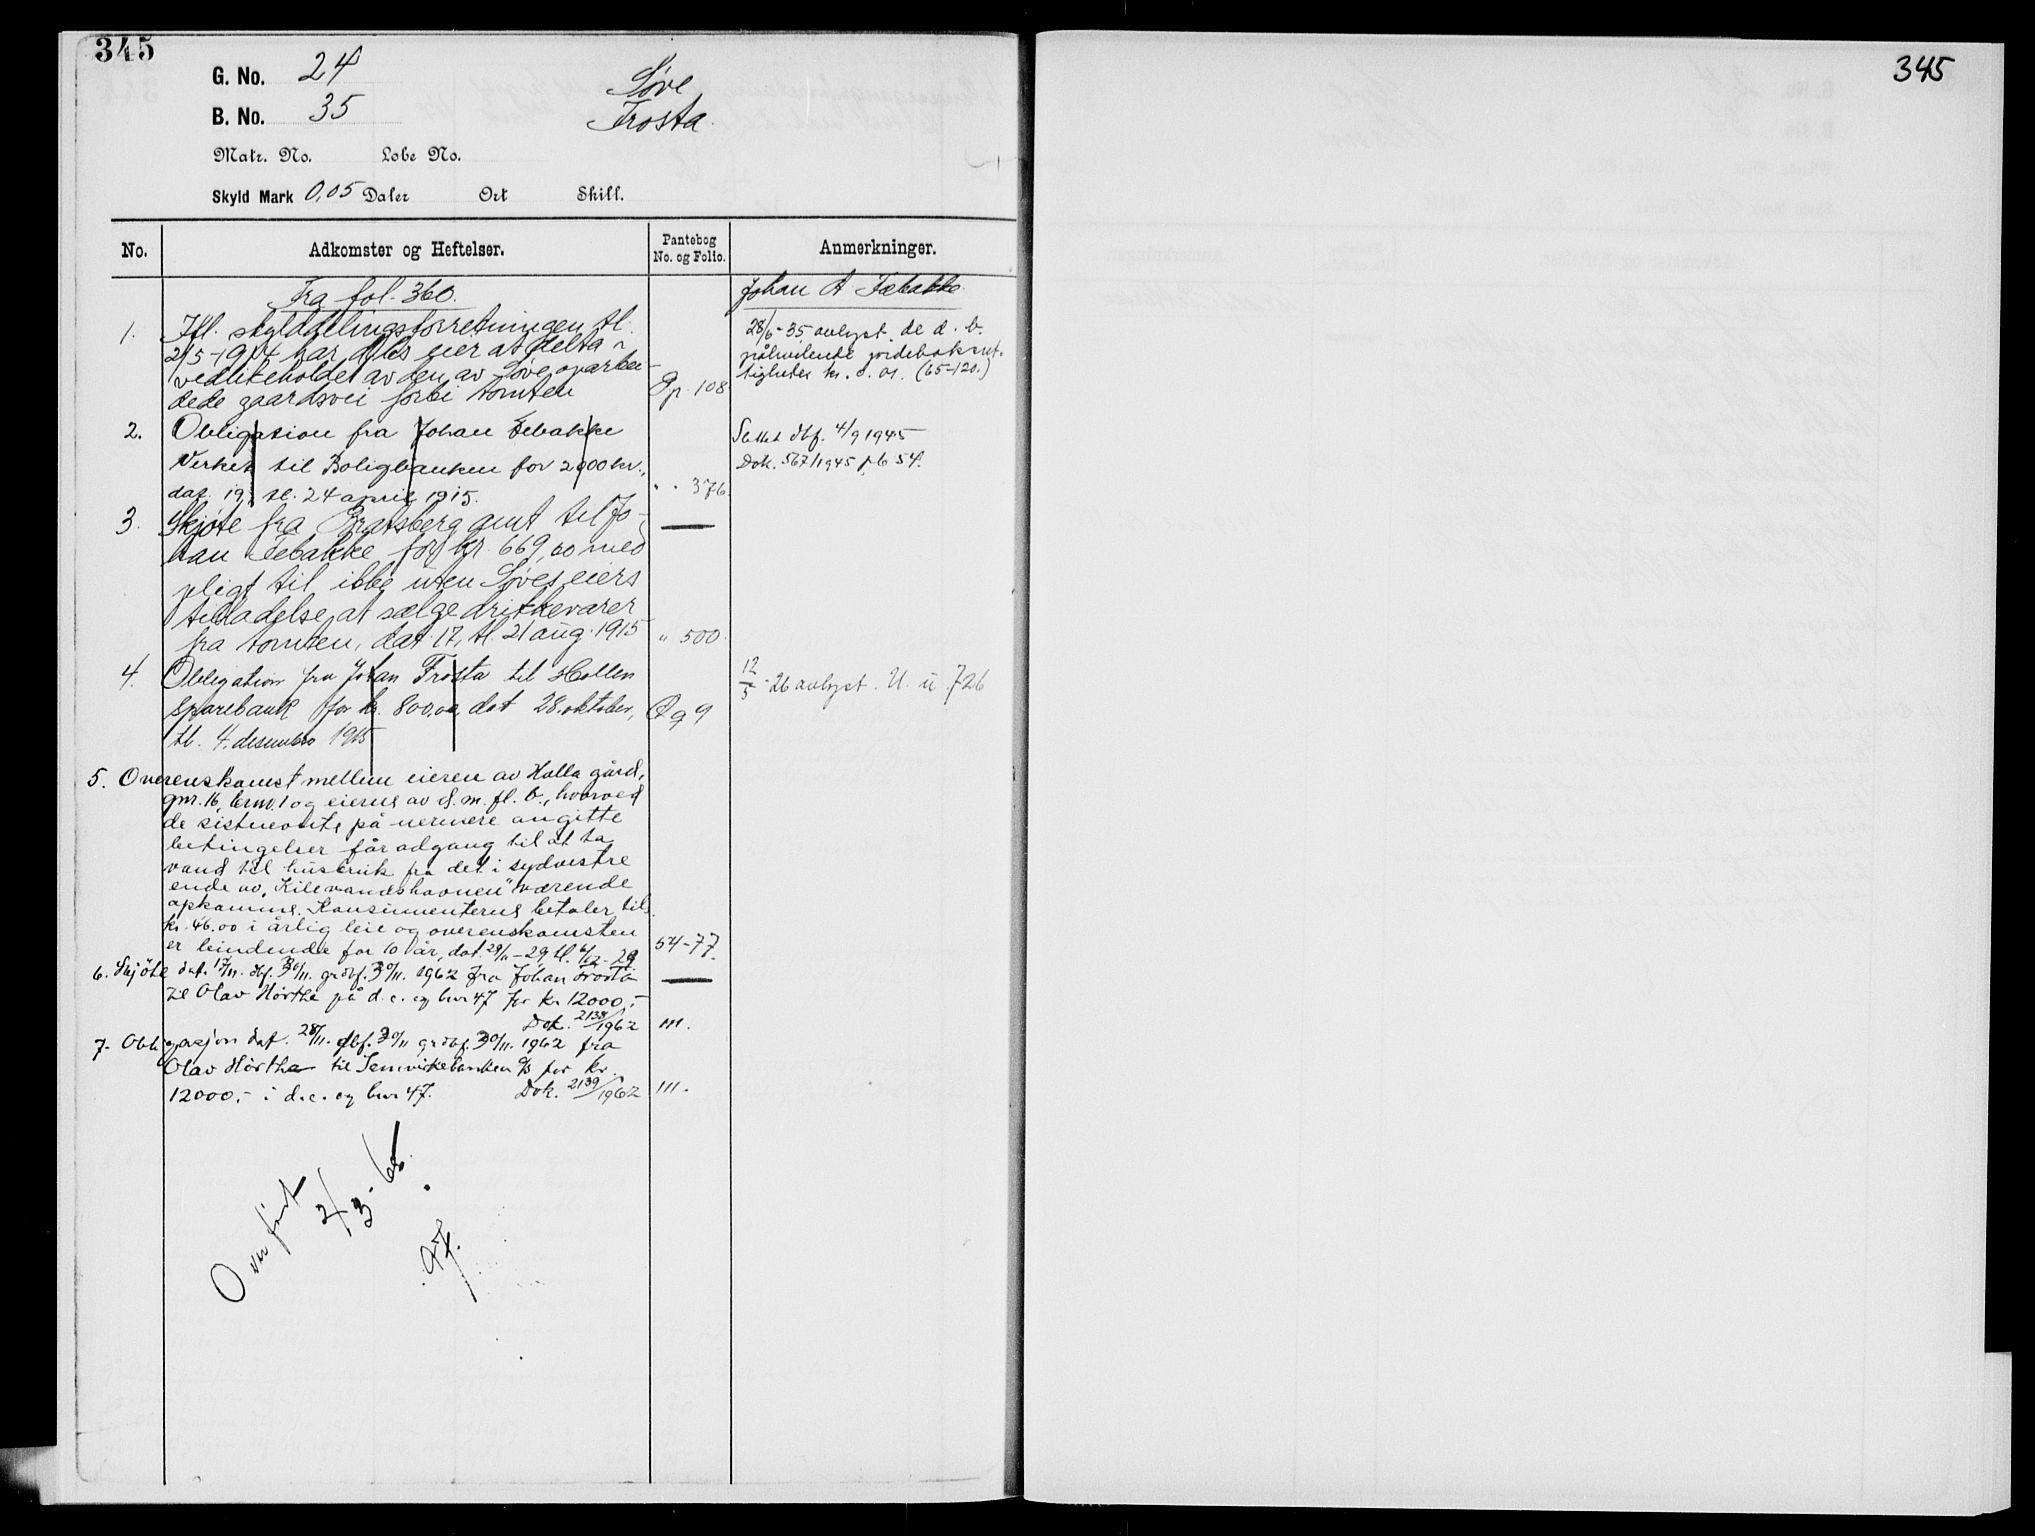 345
G. No. 24
Søve
B. No. 35
Frosta.
Matr. No. Løbe No.
Skyld Mark 0,05 Daler Ort Skill.
No. Adkomster og Heftelser. Pantebog No. og Folio. Anmerkninger.
Fra fol. 360.
Johan A Febakke
1. Ifl. skylddelingsforretningen tl.
2/5-1914 har dels eier at delta i
vedlikeholdet av den av Søve oparbei-
dede gaardsvei forbi tomten
Pp. 108
28/6-35 avlyst. de d. b.
påhvilende jordeboksret-
tigheter kr. 0.01. (65-120.)
2. Obligasion fra Johan Febakke
Verket til Boligbanken for 2900 kr.,
dat. 19, tl. 24 april 1915.
" " 376.
Slettet dbf. 4/9 1945
Dok. 567/1945 pb 54.
3. Skjøte fra Bratsberg amt til Jo-
han Febakke for kr. 669,00 med
pligt til ikke uten Søves eiers
tilladelse at sælge drikkevarer
fra tomten, dat. 17, tl. 21 aug. 1915
" 500.
4. Obligation fra Johan Frosta til Hollen
Sparebank for kr. 800,00, dat 28. oktober,
tl. 4. desember 1915
Qq 9
12/5-26 avlyst. U. u. 726
5. Overenskomst mellem eieren av Holla gård,
gnr. 16, brnr. 1 og eierne av d. m. fl. b., hvorved
de sistnevnte på nermere angitte
betingelser får adgang til at ta
vand til husbruk fra det i sydvestre
ende av „Kilevandshavnen" værende
opkomme. Konsumenterne betaler tils.
kr. 46.00 i årlig leie og overenskomsten
er bindende for 10 år, dat. 29/11-29, tl. 6/12-29
54-77.
6. Skjöte dat. 17/11. dbf. 30/11. grdbf. 30/11. 1962 fra Johan Frosta
til Olav Hörthe på d. e. og bnr 47 for kr 12000,-
Dok. 2138/1962 m.
7. Obligasjon dat. 28/11. dbf. 30/11 grdbf. 30/11. 1962 fra
Olav Hörthe til Samvirkebanken A/S for kr.
12000,- i d.e. og bnr 47. Dok. 2139/1962 m.
Overført
2/3-65.
345